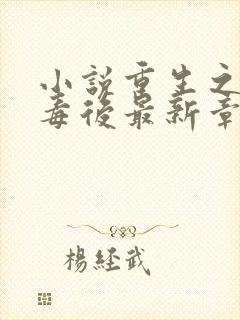 小説重生之
毒後最新章
楊經武